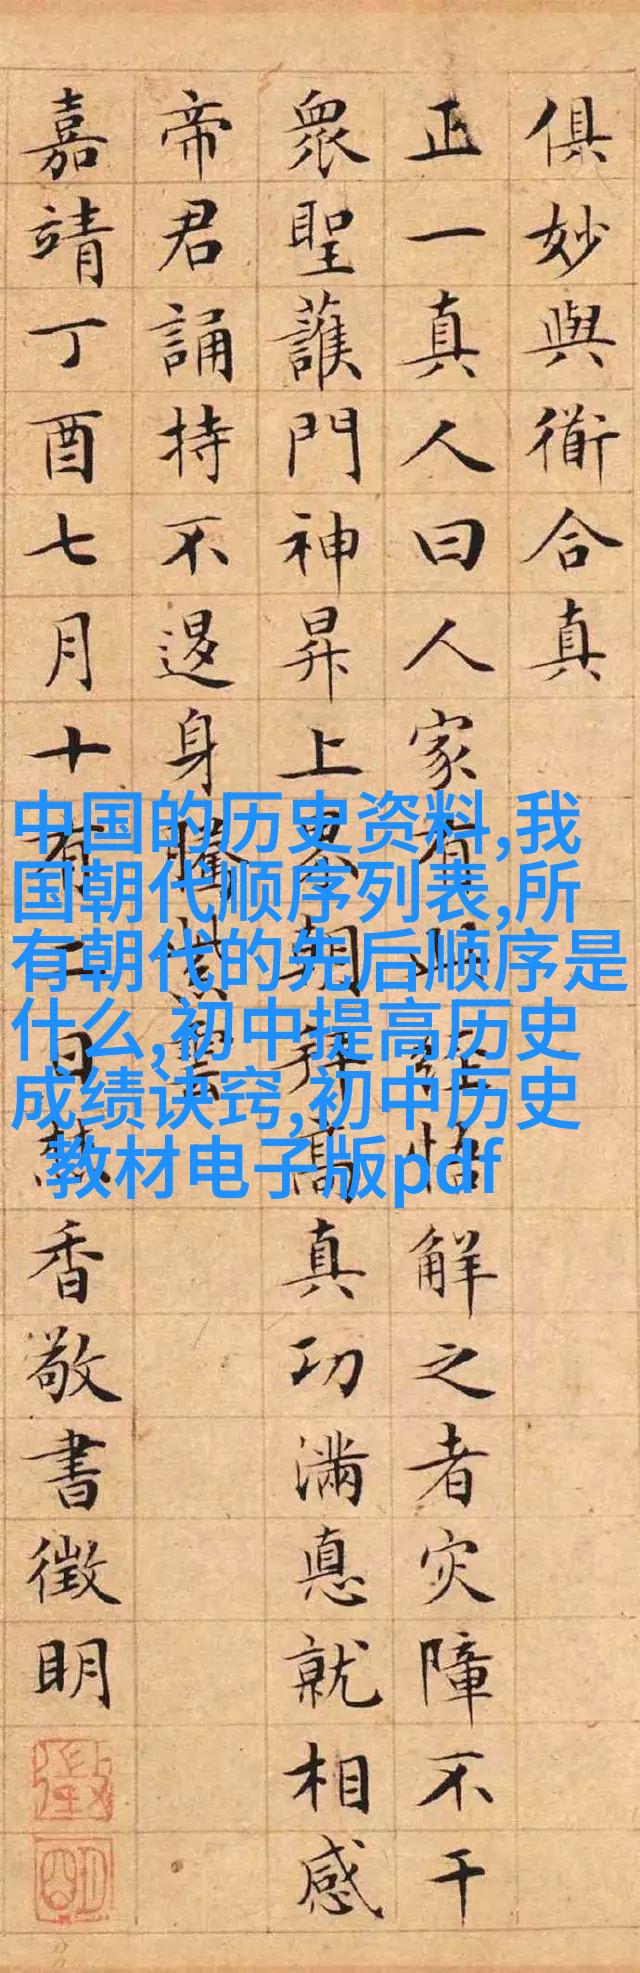 俱妙與衜合真
正一真人曰人家有此經悟解之者灾障不干
眾聖護門神昇上界朝拜高真功滿悳就相感
帝君誦持不退身騰紫雲
嘉靖丁酉七月十有二日焚香敬書徵明
徵
明
中国的历史资料,我
国朝代顺序列表,所
有朝代的先后顺序是
什么,初中提高历史
成绩诀窍,初中历史
教材电子版pdf